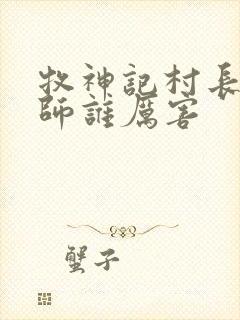 牧神記村長
師誰厲害
蟹子